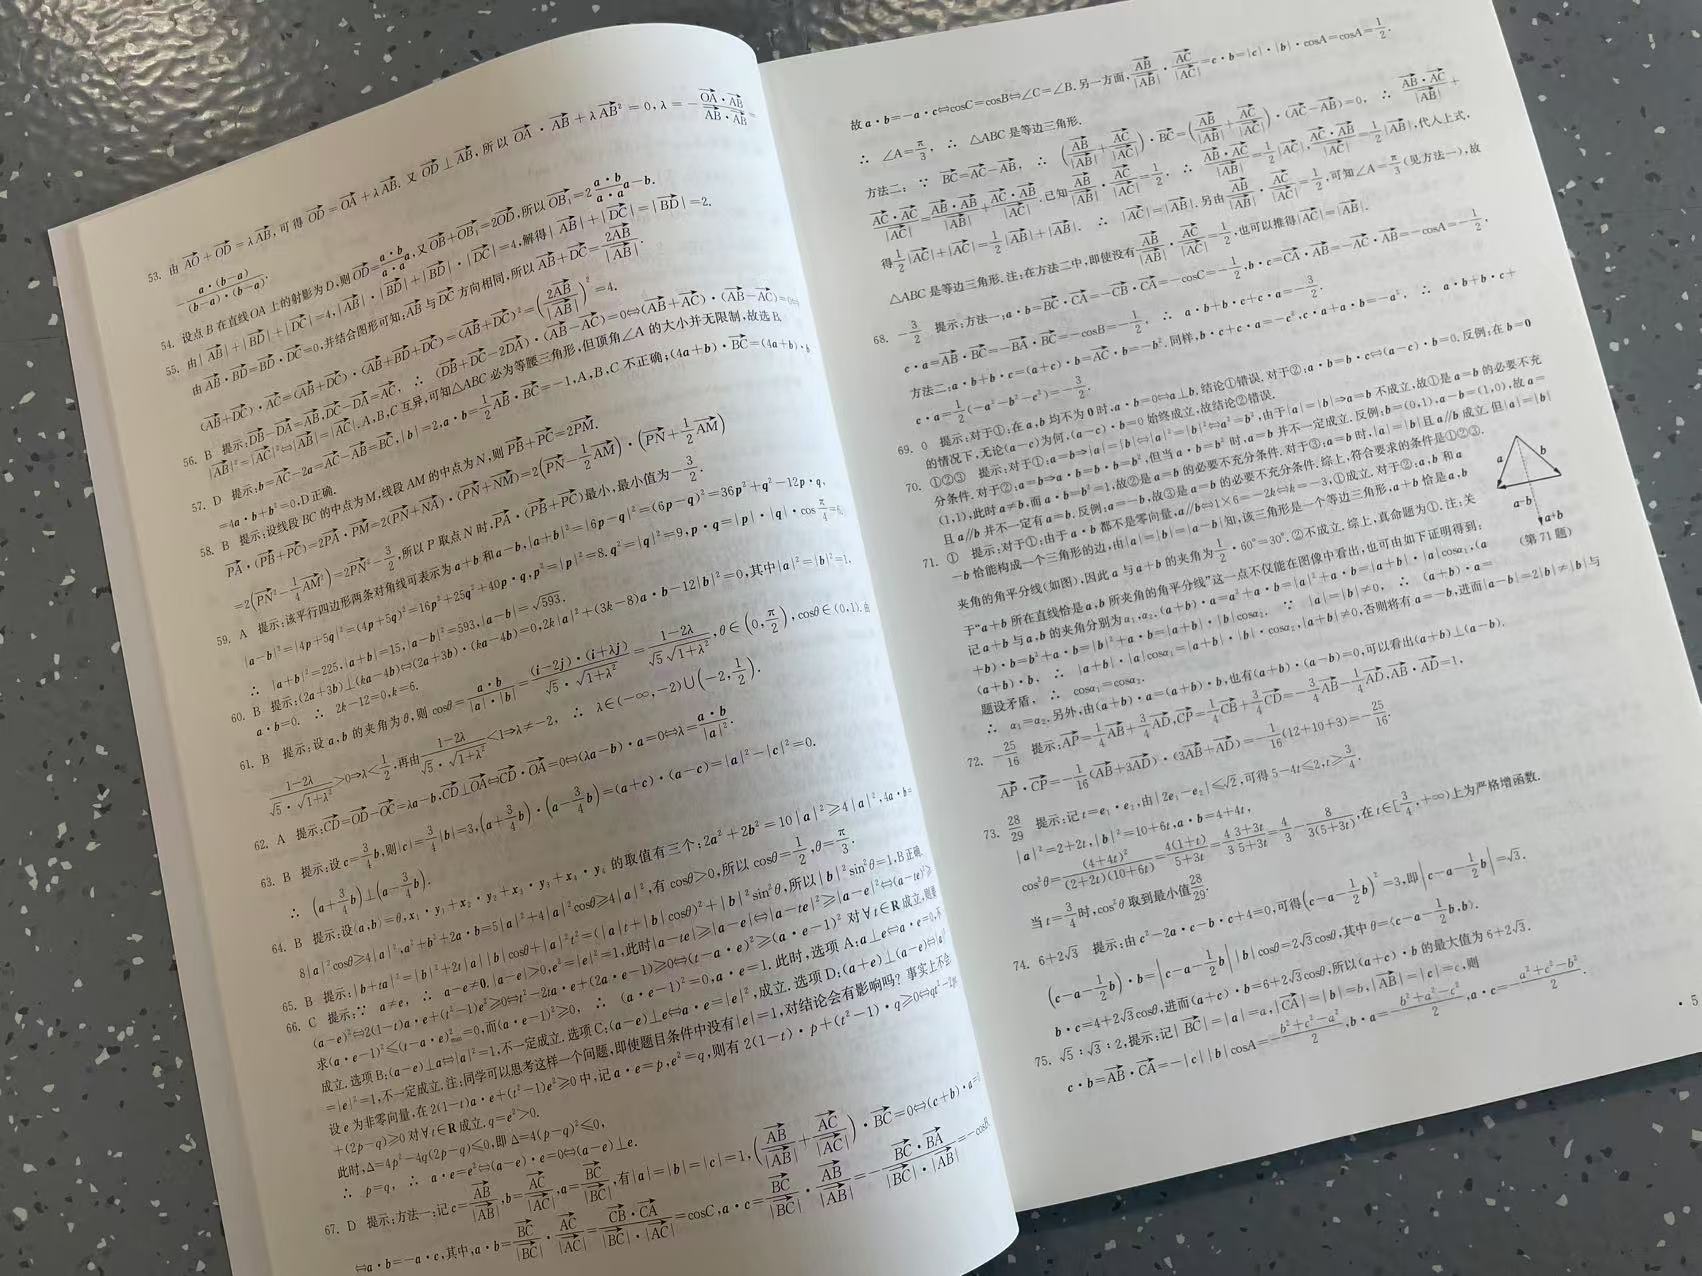 53. 由 $\overrightarrow{AO}+\overrightarrow{OD}=\lambda\overrightarrow{AB}$,可得 $\overrightarrow{OD}=\overrightarrow{OA}+\lambda\overrightarrow{AB}$. 又 $\overrightarrow{OD}\perp\overrightarrow{AB}$,所以 $\overrightarrow{OA}\cdot\overrightarrow{AB}+\lambda\overrightarrow{AB}^2=0,\lambda=-\frac{\overrightarrow{OA}\cdot\overrightarrow{AB}}{\overrightarrow{AB}\cdot\overrightarrow{AB}}=$
$-\frac{a\cdot(b-a)}{(b-a)\cdot(b-a)}$.
54. 设点 B 在直线 OA 上的射影为 D,则 $\overrightarrow{OD}=\frac{a\cdot b}{a\cdot a}a$,又 $\overrightarrow{OB}+\overrightarrow{OB_1}=2\overrightarrow{OD}$,所以 $\overrightarrow{OB_1}=2\frac{a\cdot b}{a\cdot a}a-b$.
55. 由 $|\overrightarrow{AB}|+|\overrightarrow{BD}|+|\overrightarrow{DC}|=4,|\overrightarrow{AB}|\cdot|\overrightarrow{BD}|+|\overrightarrow{BD}|\cdot|\overrightarrow{DC}|=4$,解得 $|\overrightarrow{AB}|+|\overrightarrow{DC}|=|\overrightarrow{BD}|=2$.
由 $\overrightarrow{AB}\cdot\overrightarrow{BD}=\overrightarrow{BD}\cdot\overrightarrow{DC}=0$,并结合图形可知:$\overrightarrow{AB}$ 与 $\overrightarrow{DC}$ 方向相同,所以 $\overrightarrow{AB}+\overrightarrow{DC}=\frac{2\overrightarrow{AB}}{|\overrightarrow{AB}|}$.
$(\overrightarrow{AB}+\overrightarrow{DC})\cdot\overrightarrow{AC}=(\overrightarrow{AB}+\overrightarrow{DC})\cdot(\overrightarrow{AB}+\overrightarrow{BD}+\overrightarrow{DC})=(\overrightarrow{AB}+\overrightarrow{DC})^2=\left(\frac{2\overrightarrow{AB}}{|\overrightarrow{AB}|}\right)^2=4$.
56. B 提示:$\overrightarrow{DB}-\overrightarrow{DA}=\overrightarrow{AB},\overrightarrow{DC}-\overrightarrow{DA}=\overrightarrow{AC}$, ∴ $(\overrightarrow{DB}+\overrightarrow{DC}-2\overrightarrow{DA})\cdot(\overrightarrow{AB}-\overrightarrow{AC})=0⇔(\overrightarrow{AB}+\overrightarrow{AC})\cdot(\overrightarrow{AB}-\overrightarrow{AC})=0⇔$
$|\overrightarrow{AB}|^2=|\overrightarrow{AC}|^2⇔|\overrightarrow{AB}|=|\overrightarrow{AC}|$. A,B,C 互异,可知△ABC 必为等腰三角形,但顶角∠A 的大小并无限制,故选 B.
57. D 提示:$b=\overrightarrow{AC}-2a=\overrightarrow{AC}-\overrightarrow{AB}=\overrightarrow{BC},|b|=2,a\cdot b=\frac{1}{2}\overrightarrow{AB}\cdot\overrightarrow{BC}=-1$,A,B,C 不正确;$(4a+b)\cdot\overrightarrow{BC}=(4a+b)\cdot b$
$=4a\cdot b+b^2=0$,D 正确.
58. B 提示:设线段 BC 的中点为 M,线段 AM 的中点为 N,则 $\overrightarrow{PB}+\overrightarrow{PC}=2\overrightarrow{PM}$.
$\overrightarrow{PA}\cdot(\overrightarrow{PB}+\overrightarrow{PC})=2\overrightarrow{PA}\cdot\overrightarrow{PM}=2(\overrightarrow{PN}+\overrightarrow{NA})\cdot(\overrightarrow{PN}+\overrightarrow{NM})=2\left(\overrightarrow{PN}-\frac{1}{2}\overrightarrow{AM}\right)\cdot\left(\overrightarrow{PN}+\frac{1}{2}\overrightarrow{AM}\right)$
$=2\left(\overrightarrow{PN}^2-\frac{1}{4}\overrightarrow{AM}^2\right)=2\overrightarrow{PN}^2-\frac{3}{2}$,所以 P 取点 N 时,$\overrightarrow{PA}\cdot(\overrightarrow{PB}+\overrightarrow{PC})$最小,最小值为 $-\frac{3}{2}$.
59. A 提示:该平行四边形两条对角线可表示为 $a+b$ 和 $a-b,|a+b|^2=|6p-q|^2=(6p-q)^2=36p^2+q^2-12p\cdot q$,
$|a-b|^2=|4p+5q|^2=(4p+5q)^2=16p^2+25q^2+40p\cdot q,p^2=|p|^2=8,q^2=|q|^2=9,p\cdot q=|p|\cdot|q|\cdot\cos\frac{\pi}{4}=6$,
∴ $|a+b|^2=225,|a+b|=15,|a-b|^2=593,|a-b|=\sqrt{593}$.
60. B 提示:$(2a+3b)\perp(ka-4b)⇔(2a+3b)\cdot(ka-4b)=0,2k|a|^2+(3k-8)a\cdot b-12|b|^2=0$,其中 $|a|^2=|b|^2=1$,
$a\cdot b=0$. ∴ $2k-12=0,k=6$.
61. B 提示:设 a,b 的夹角为 θ,则 $\cos\theta=\frac{a\cdot b}{|a|\cdot|b|}=\frac{(i-2j)\cdot(i+\lambda j)}{\sqrt{5}\cdot\sqrt{1+\lambda^2}}=\frac{1-2\lambda}{\sqrt{5}\sqrt{1+\lambda^2}},\theta\in\left(0,\frac{\pi}{2}\right),\cos\theta\in(0,1)$.由
$\frac{1-2\lambda}{\sqrt{5}\cdot\sqrt{1+\lambda^2}}>0⇒\lambda<\frac{1}{2}$.再由$\frac{1-2\lambda}{\sqrt{5}\cdot\sqrt{1+\lambda^2}}<1⇒\lambda\neq-2$, ∴ $\lambda\in(-\infty,-2)\cup\left(-2,\frac{1}{2}\right)$.
62. A 提示:$\overrightarrow{CD}=\overrightarrow{OD}-\overrightarrow{OC}=\lambda a-b,\overrightarrow{CD}\perp\overrightarrow{OA}⇔\overrightarrow{CD}\cdot\overrightarrow{OA}=0⇔(\lambda a-b)\cdot a=0⇔\lambda=\frac{a\cdot b}{|a|^2}$.
63. B 提示:设 $c=\frac{3}{4}b$,则$|c|=\frac{3}{4}|b|=3,\left(a+\frac{3}{4}b\right)\cdot\left(a-\frac{3}{4}b\right)=(a+c)\cdot(a-c)=|a|^2-|c|^2=0$.
∴ $\left(a+\frac{3}{4}b\right)\perp\left(a-\frac{3}{4}b\right)$.
64. B 提示:设$\langle a,b\rangle=\theta,x_1\cdot y_1+x_2\cdot y_2+x_3\cdot y_3+x_4\cdot y_4$ 的取值有三个:$2a^2+2b^2=10|a|^2\geqslant4|a|^2,4a\cdot b=$
$8|a|^2\cos\theta\geqslant4|a|^2,a^2+b^2+2a\cdot b=5|a|^2+4|a|^2\cos\theta\geqslant4|a|^2$,有 $\cos\theta>0$,所以 $\cos\theta=\frac{1}{2},\theta=\frac{\pi}{3}$.
65. B 提示:$|b+ta|^2=|b|^2+2t|a||b|\cos\theta+|a|^2t^2=(|a|t+|b|\cos\theta)^2+|b|^2\sin^2\theta$,所以$|b|^2\sin^2\theta=1$,B 正确.
66. C 提示:∵ $a\neq e$, ∴ $a-e\neq0,|a-e|>0,e^2=|e|^2=1$,此时$|a-te|\geqslant|a-e|⇔|a-te|^2\geqslant|a-e|^2⇔(a-te)^2\geqslant$
$(a-e)^2⇔2(1-t)a\cdot e+(t^2-1)e^2\geqslant0⇔t^2-2ta\cdot e+(2a\cdot e-1)\geqslant0⇔(t-a\cdot e)^2\geqslant(a\cdot e-1)^2$ 对∀t∈R成立,则要
求$(a\cdot e-1)^2\leqslant(t-a\cdot e)^2_{min}=0$,而$(a\cdot e-1)^2\geqslant0$, ∴ $(a\cdot e-1)^2=0,a\cdot e=1$. 此时,选项 A:$a\perp e⇔a\cdot e=0$,不
成立. 选项 B:$(a-e)\perp a⇔|a|^2=1$,不一定成立. 选项 C:$(a-e)\perp e⇔a\cdot e=|e|^2$,成立. 选项 D:$(a+e)\perp(a-e)⇔|a|^2$
$=|e|^2=1$,不一定成立. 注:同学可以思考这样一个问题,即使题目条件中没有$|e|=1$,对结论会有影响吗? 事实上不会.
设 e 为非零向量,在 $2(1-t)a\cdot e+(t^2-1)e^2\geqslant0$ 中,记 $a\cdot e=p,e^2=q$,则有 $2(1-t)\cdot p+(t^2-1)\cdot q\geqslant0⇔qt^2-2pt$
$+(2p-q)\geqslant0$ 对∀t∈R成立. $q=e^2>0$.
此时,$\Delta=4p^2-4q(2p-q)\leqslant0$,即 $\Delta=4(p-q)^2\leqslant0$,
∴ $p=q$, ∴ $a\cdot e=e^2⇔(a-e)\cdot e=0⇔(a-e)\perp e$.
67. D 提示:方法一:记 $c=\frac{\overrightarrow{AB}}{|\overrightarrow{AB}|},b=\frac{\overrightarrow{AC}}{|\overrightarrow{AC}|},a=\frac{\overrightarrow{BC}}{|\overrightarrow{BC}|}$,有$|a|=|b|=|c|=1,\left(\frac{\overrightarrow{AB}}{|\overrightarrow{AB}|}+\frac{\overrightarrow{AC}}{|\overrightarrow{AC}|}\right)\cdot\overrightarrow{BC}=0⇔(c+b)\cdot a=0$
$⇔a\cdot b=-a\cdot c$,其中,$a\cdot b=\frac{\overrightarrow{BC}}{|\overrightarrow{BC}|}\cdot\frac{\overrightarrow{AC}}{|\overrightarrow{AC}|}=\frac{\overrightarrow{CB}\cdot\overrightarrow{CA}}{|\overrightarrow{BC}|\cdot|\overrightarrow{AC}|}=\cos C,a\cdot c=\frac{\overrightarrow{BC}}{|\overrightarrow{BC}|}\cdot\frac{\overrightarrow{AB}}{|\overrightarrow{AB}|}=-\frac{\overrightarrow{BC}\cdot\overrightarrow{BA}}{|\overrightarrow{BC}|\cdot|\overrightarrow{AB}|}=-\cos B$,
故 $a\cdot b=-a\cdot c⇔\cos C=\cos B⇔∠C=∠B$. 另一方面,$\frac{\overrightarrow{AB}}{|\overrightarrow{AB}|}\cdot\frac{\overrightarrow{AC}}{|\overrightarrow{AC}|}=c\cdot b=|c|\cdot|b|\cdot\cos A=\cos A=\frac{1}{2}$.
∴ $∠A=\frac{\pi}{3}$, ∴ △ABC 是等边三角形.
方法二: ∵ $\overrightarrow{BC}=\overrightarrow{AC}-\overrightarrow{AB}$, ∴ $\left(\frac{\overrightarrow{AB}}{|\overrightarrow{AB}|}+\frac{\overrightarrow{AC}}{|\overrightarrow{AC}|}\right)\cdot\overrightarrow{BC}=\left(\frac{\overrightarrow{AB}}{|\overrightarrow{AB}|}+\frac{\overrightarrow{AC}}{|\overrightarrow{AC}|}\right)\cdot(\overrightarrow{AC}-\overrightarrow{AB})=0$, ∴ $\frac{\overrightarrow{AB}\cdot\overrightarrow{AC}}{|\overrightarrow{AB}|}+$
$\frac{\overrightarrow{AC}\cdot\overrightarrow{AC}}{|\overrightarrow{AC}|}=\frac{\overrightarrow{AB}\cdot\overrightarrow{AB}}{|\overrightarrow{AB}|}+\frac{\overrightarrow{AC}\cdot\overrightarrow{AB}}{|\overrightarrow{AC}|}$. 已知$\frac{\overrightarrow{AB}}{|\overrightarrow{AB}|}\cdot\frac{\overrightarrow{AC}}{|\overrightarrow{AC}|}=\frac{1}{2}$, ∴ $\frac{\overrightarrow{AB}\cdot\overrightarrow{AC}}{|\overrightarrow{AB}|}=\frac{1}{2}|\overrightarrow{AC}|,\frac{\overrightarrow{AC}\cdot\overrightarrow{AB}}{|\overrightarrow{AC}|}=\frac{1}{2}|\overrightarrow{AB}|$,代入上式,
得$\frac{1}{2}|\overrightarrow{AC}|+|\overrightarrow{AC}|=\frac{1}{2}|\overrightarrow{AB}|+|\overrightarrow{AB}|$. ∴ $|\overrightarrow{AC}|=|\overrightarrow{AB}|$. 另由$\frac{\overrightarrow{AB}}{|\overrightarrow{AB}|}\cdot\frac{\overrightarrow{AC}}{|\overrightarrow{AC}|}=\frac{1}{2}$,可知$∠A=\frac{\pi}{3}$(见方法一),故
△ABC 是等边三角形. 注:在方法二中,即使没有$\frac{\overrightarrow{AB}}{|\overrightarrow{AB}|}\cdot\frac{\overrightarrow{AC}}{|\overrightarrow{AC}|}=\frac{1}{2}$,也可以推得$|\overrightarrow{AC}|=|\overrightarrow{AB}|$.
68. $-\frac{3}{2}$ 提示:方法一:$a\cdot b=\overrightarrow{BC}\cdot\overrightarrow{CA}=-\overrightarrow{CB}\cdot\overrightarrow{CA}=-\cos C=-\frac{1}{2},b\cdot c=\overrightarrow{CA}\cdot\overrightarrow{AB}=-\overrightarrow{AC}\cdot\overrightarrow{AB}=-\cos A=-\frac{1}{2}$,
$c\cdot a=\overrightarrow{AB}\cdot\overrightarrow{BC}=-\overrightarrow{BA}\cdot\overrightarrow{BC}=-\cos B=-\frac{1}{2}$, ∴ $a\cdot b+b\cdot c+c\cdot a=-\frac{3}{2}$.
方法二:$a\cdot b+b\cdot c=(a+c)\cdot b=\overrightarrow{AC}\cdot b=-b^2$. 同样,$b\cdot c+c\cdot a=-c^2,c\cdot a+a\cdot b=-a^2$, ∴ $a\cdot b+b\cdot c+$
$c\cdot a=\frac{1}{2}(-a^2-b^2-c^2)=-\frac{3}{2}$.
69. 0 提示:对于①:在 a,b 均不为 0 时,$a\cdot b=0⇔a\perp b$. 结论①错误. 对于②:$a\cdot b=b\cdot c⇔(a-c)\cdot b=0$. 反例:在 $b=0$
的情况下,无论$(a-c)$为何,$(a-c)\cdot b=0$ 始终成立,故结论②错误.
70. ①②③ 提示:对于①:$a=b⇒|a|=|b|⇔|a|^2=|b|^2⇔a^2=b^2$,由于$|a|=|b|⇒a=b$ 不成立,故①是 $a=b$ 的必要不充
分条件. 对于②:$a=b⇒a\cdot b=b\cdot b=b^2$,但当 $a\cdot b=b^2$ 时,$a=b$ 并不一定成立. 反例:$b=(0,1),a-b=(1,0)$,故 $a=$
$(1,1)$,此时 $a\neq b$,而 $a\cdot b=b^2=1$,故②是 $a=b$ 的必要不充分条件. 对于③:$a=b$ 时,$|a|=|b|$且 $a∥b$ 成立. 但$|a|=|b|$
且 $a∥b$ 并不一定有 $a=b$. 反例:$a=-b$,故③是 $a=b$ 的必要不充分条件. 综上,符合要求的条件是①②③.
71. ① 提示:对于①:由于 $a\cdot b$ 都不是零向量,$a∥b⇔1×6=-2k⇔k=-3$,①成立. 对于②:a,b 和 a
−b 恰能构成一个三角形的边,由$|a|=|b|=|a-b|$知,该三角形是一个等边三角形,$a+b$ 恰是 a,b
夹角的角平分线(如图),因此 a 与 $a+b$ 的夹角为$\frac{1}{2}\cdot60°=30°$. ②不成立. 综上,真命题为①. 注:关
于“$a+b$ 所在直线恰是 a,b 所夹角的角平分线”这一点不仅能在图像中看出,也可由如下证明得到:
记 $a+b$ 与 a,b 的夹角分别为 $\alpha_1,\alpha_2,(a+b)\cdot a=a^2+a\cdot b=|a|^2+a\cdot b=|a+b|\cdot|a|\cos\alpha_1,(a$
$+b)\cdot b=b^2+a\cdot b=|b|^2+a\cdot b=|a+b|\cdot|b|\cos\alpha_2$. ∵ $|a|=|b|\neq0$, ∴ $(a+b)\cdot a=$
$(a+b)\cdot b$, ∴ $|a+b|\cdot|a|\cos\alpha_1=|a+b|\cdot|b|\cdot\cos\alpha_2,|a+b|\neq0$,否则将有 $a=-b$,进而$|a-b|=2|b|\neq|b|$与
题设矛盾, ∴ $\cos\alpha_1=\cos\alpha_2$.
∴ $\alpha_1=\alpha_2$. 另外,由$(a+b)\cdot a=(a+b)\cdot b$,也有$(a+b)\cdot(a-b)=0$,可以看出$(a+b)\perp(a-b)$.
a
b
a-b
a+b
(第 71 题)
72. $-\frac{25}{16}$ 提示:$\overrightarrow{AP}=\frac{1}{4}\overrightarrow{AB}+\frac{3}{4}\overrightarrow{AD},\overrightarrow{CP}=\frac{1}{4}\overrightarrow{CB}+\frac{3}{4}\overrightarrow{CD}=-\frac{3}{4}\overrightarrow{AB}-\frac{1}{4}\overrightarrow{AD},\overrightarrow{AB}\cdot\overrightarrow{AD}=1$,
$\overrightarrow{AP}\cdot\overrightarrow{CP}=-\frac{1}{16}(\overrightarrow{AB}+3\overrightarrow{AD})\cdot(3\overrightarrow{AB}+\overrightarrow{AD})=-\frac{1}{16}(12+10+3)=-\frac{25}{16}$.
73. $\frac{28}{29}$ 提示:记 $t=e_1\cdot e_2$,由$|2e_1-e_2|\leqslant\sqrt{2}$,可得 $5-4t\leqslant2,t\geqslant\frac{3}{4}$.
$|a|^2=2+2t,|b|^2=10+6t,a\cdot b=4+4t$,
$\cos^2\theta=\frac{(4+4t)^2}{(2+2t)(10+6t)}=\frac{4(1+t)}{5+3t}=\frac{4}{3}\frac{3+3t}{5+3t}=\frac{4}{3}-\frac{8}{3(5+3t)}$,在 $t\in[\frac{3}{4},+\infty)$上为严格增函数.
当 $t=\frac{3}{4}$时,$\cos^2\theta$ 取到最小值$\frac{28}{29}$.
74. $6+2\sqrt{3}$ 提示:由 $c^2-2a\cdot c-b\cdot c+4=0$,可得$\left(c-a-\frac{1}{2}b\right)^2=3$,即$\left|c-a-\frac{1}{2}b\right|=\sqrt{3}$.
$\left(c-a-\frac{1}{2}b\right)\cdot b=\left|c-a-\frac{1}{2}b\right||b|\cos\theta=2\sqrt{3}\cos\theta$,其中 $\theta=\langle c-a-\frac{1}{2}b,b\rangle$.
$b\cdot c=4+2\sqrt{3}\cos\theta$,进而$(a+c)\cdot b=6+2\sqrt{3}\cos\theta$,所以$(a+c)\cdot b$ 的最大值为 $6+2\sqrt{3}$.
75. $\sqrt{5}:\sqrt{3}:2$,提示:记$|\overrightarrow{BC}|=|a|=a,|\overrightarrow{CA}|=|b|=b,|\overrightarrow{AB}|=|c|=c$,则
$c\cdot b=\overrightarrow{AB}\cdot\overrightarrow{CA}=-|c||b|\cos A=-\frac{b^2+c^2-a^2}{2},b\cdot a=-\frac{b^2+a^2-c^2}{2},a\cdot c=-\frac{a^2+c^2-b^2}{2}$.
· 5